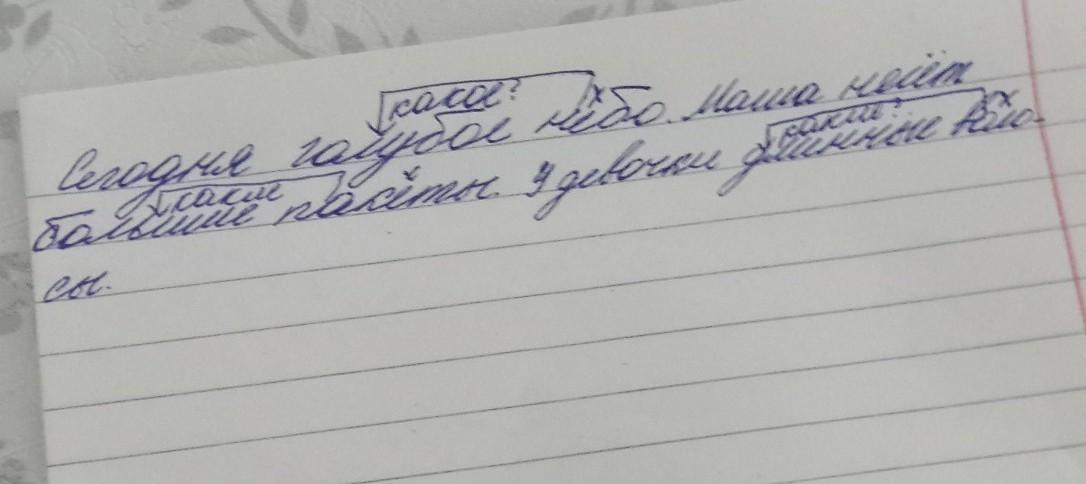 какое?
Сегодня голубое небо. Маша несёт
какие? какие?
большие пакеты. У девочки длинные воло-
сы.